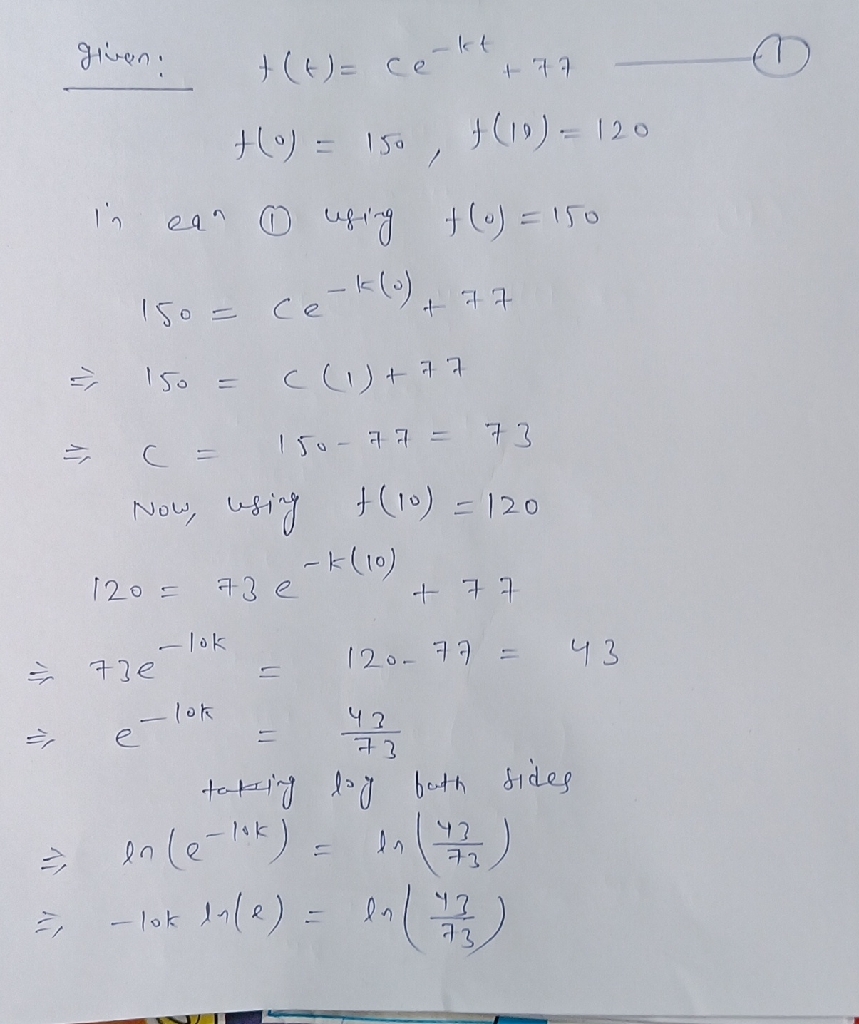 given: f(t) = ce^{-kt} + 77 — ①
f(0) = 150, f(10) = 120
in eqn ① using f(0) = 150
150 = ce^{-k(0)} + 77
⇒ 150 = c(1) + 77
⇒ c = 150 - 77 = 73
Now, using f(10) = 120
120 = 73e^{-k(10)} + 77
⇒ 73e^{-10k} = 120 - 77 = 43
⇒ e^{-10k} = 43/73
taking log both sides
⇒ ln(e^{-10k}) = ln(43/73)
⇒ -10k ln(e) = ln(43/73)